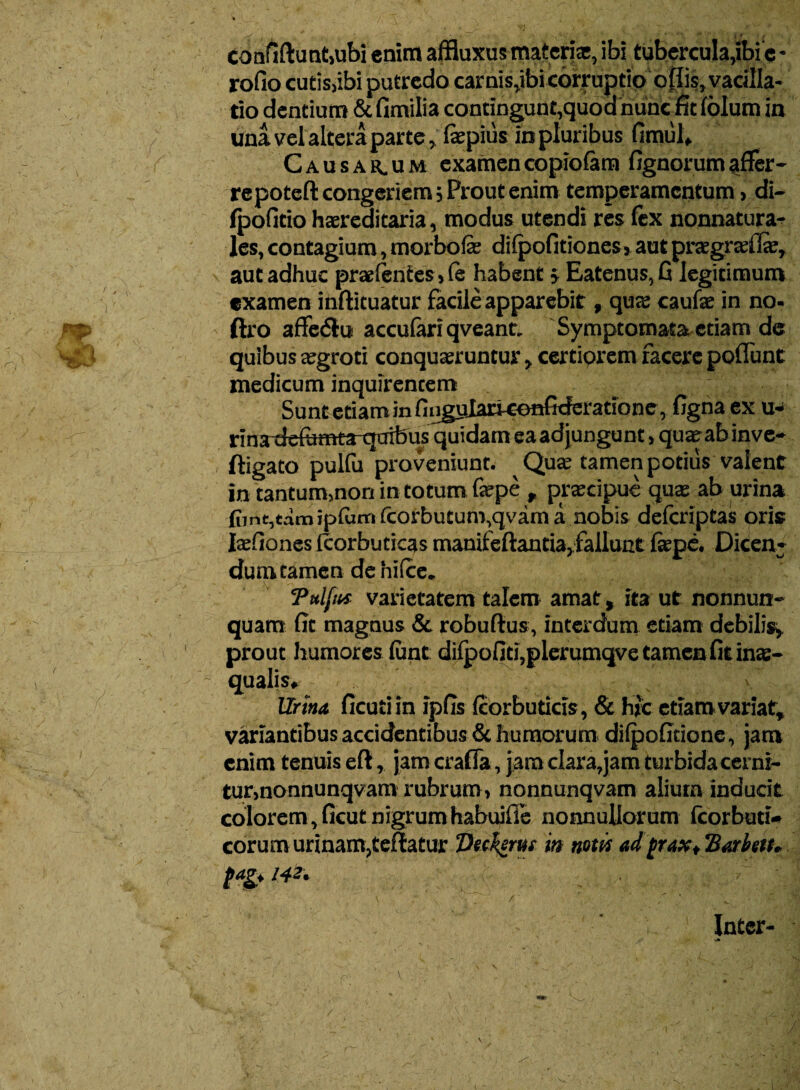 conſiſtunt,ubi enim affluxus materiæ, ibi tubercula,ibi e-
roſio cutis,ibi putredo carnis,ibi corruptio oſſis, vacilla-
tio dentium & ſimilia contingunt,quod nunc fit ſolum in
unâ vel alterâ parte, ſæpiùs in pluribus ſimul.
CAUSARUM examen copioſam ſignorum affer-
re poteſt congeriem; Prout enim temperamentum, di-
ſpoſitio hæreditaria, modus utendi res ſex nonnatura-
les, contagium, morboſæ diſpoſitiones, aut prægræſſæ,
aut adhuc præſentes, ſe habent; Eatenus, ſi legitimum
examen inſtituatur facilè apparebit, quæ cauſæ in no-
ſtro affectu accuſari qveant. Symptomata etiam de
quibus ægroti conquæruntur, certiorem facere poſſunt
medicum inquirentem
Sunt etiam in ſingulari conſideratione, ſigna ex u-
rina deſumta quibus quidam ea adjungunt, quæ ab inve-
ſtigato pulſu proveniunt. Quæ tamen potiùs valent
in tantum,non in totum ſæpè, præcipuè quæ ab urina
ſunt,tàm ipſum ſcorbutum,qvàm à nobis deſcriptas oris
læſiones ſcorbuticas manifeſtantia, fallunt ſæpè. Dicen-
dum tamen de hiſce.
Pulſus varietatem talem amat, ita ut nonnun-
quam ſit magnus & robuſtus, interdum etiam debilis,
prout humores ſunt diſpoſiti,plerumqve tamen fit inæ-
qualis.
Urina ſicuti in ipſis ſcorbuticis, & hîc etiam variat,
variantibus accidentibus & humorum diſpoſitione, jam
enim tenuis eſt, jam craſſa, jam clara,jam turbida cerni-
tur,nonnunqvam rubrum, nonnunqvam alium inducit
colorem, ſicut nigrum habuiſſe nonnullorum ſcorbuti-
corum urinam,teſtatur Deckerus in notis ad prax. Barbett.
pag. 142.
Inter-